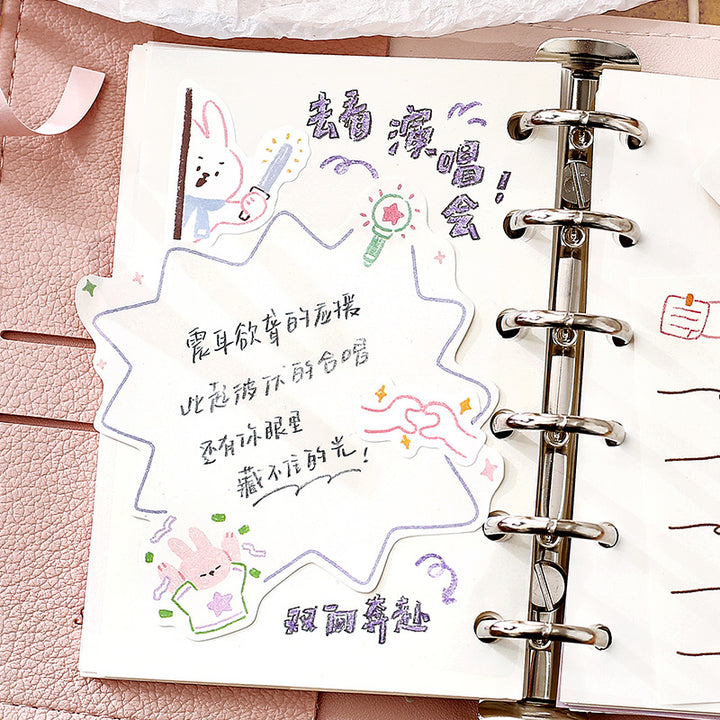 去看演唱会!
震耳欲聋的应援
此起彼伏的合唱
还有你眼里
藏不住的光!
双向奔赴